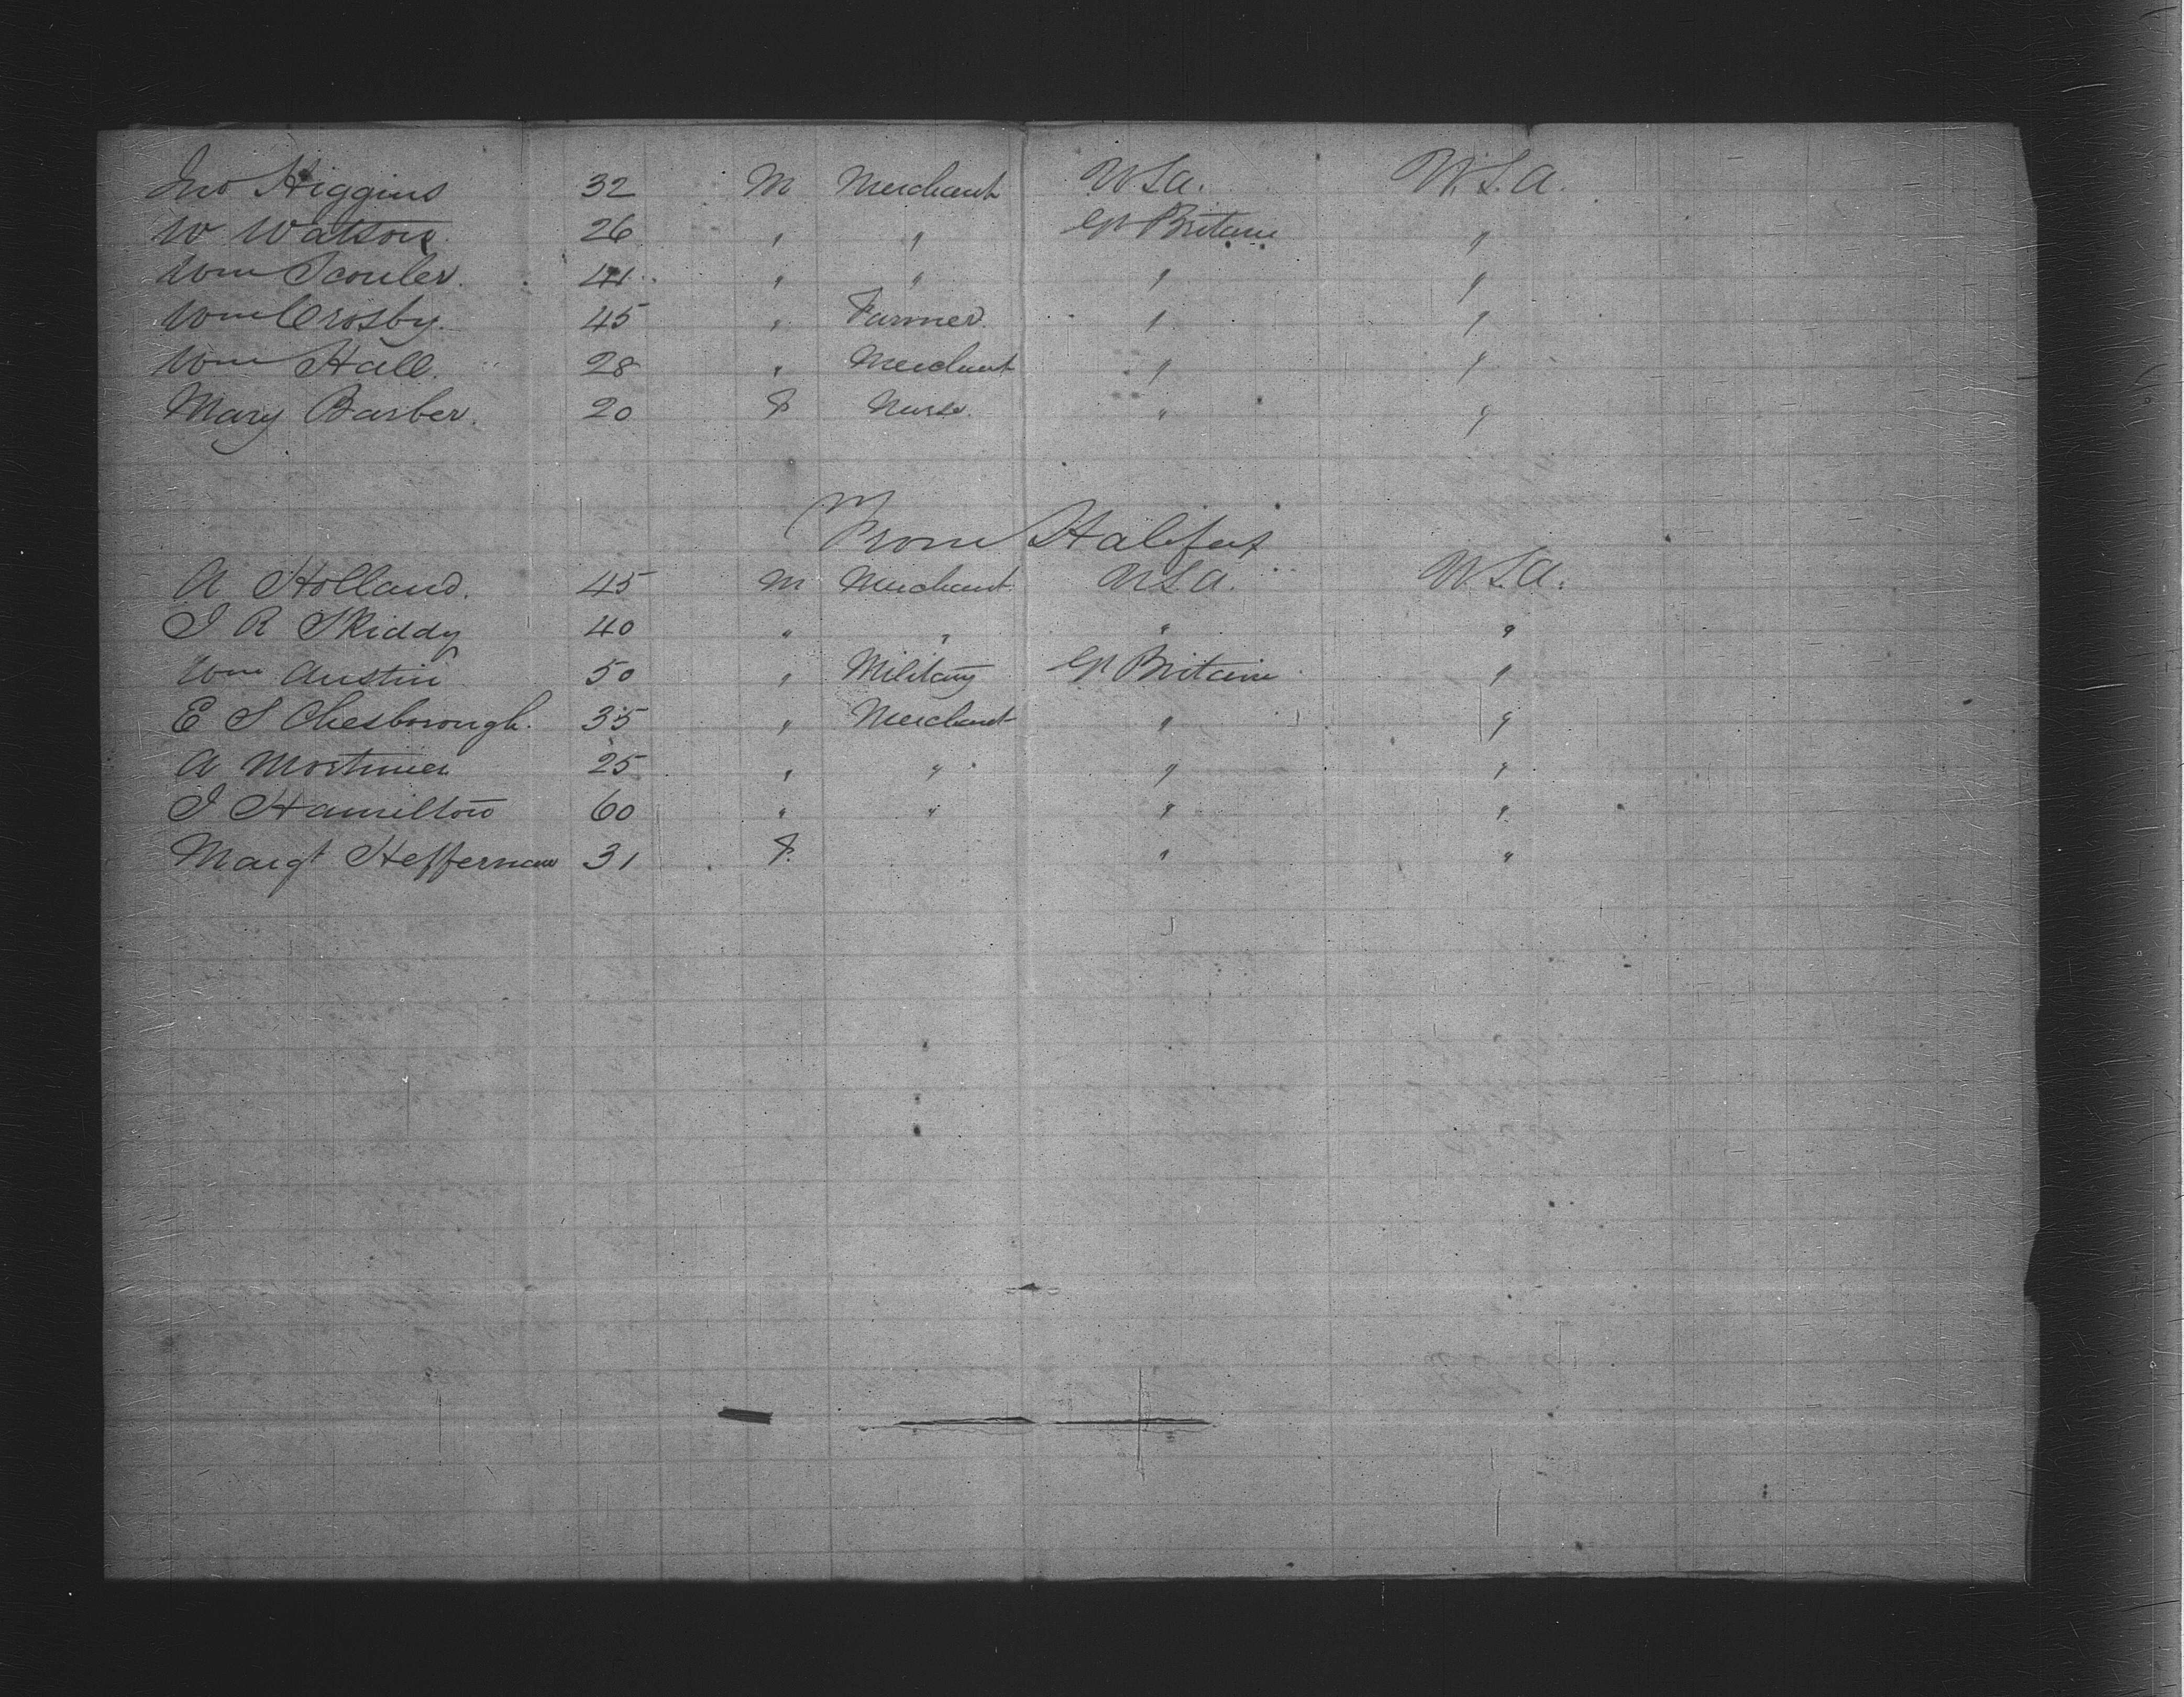 Jno Higgins 32 M Merchant U.S.A. U.S.A.
W Watson 26 " " Gt Britain "
Wm Scouler 41 " " " "
Wm Crosby 45 " Farmer " "
Wm Hall 28 " Merchant " "
Mary Barber 20 F Nurse " "
From Halifax
A Holland 45 M Merchant U.S.A. U.S.A.
J R Skiddy 40 " " " "
Wm Austin 50 " Military Gt Britain "
E S Chesborough 35 " Merchant " "
A Mortimer 25 " " " "
J Hamilton 60 " " " "
Margt Heffernan 31 F " "